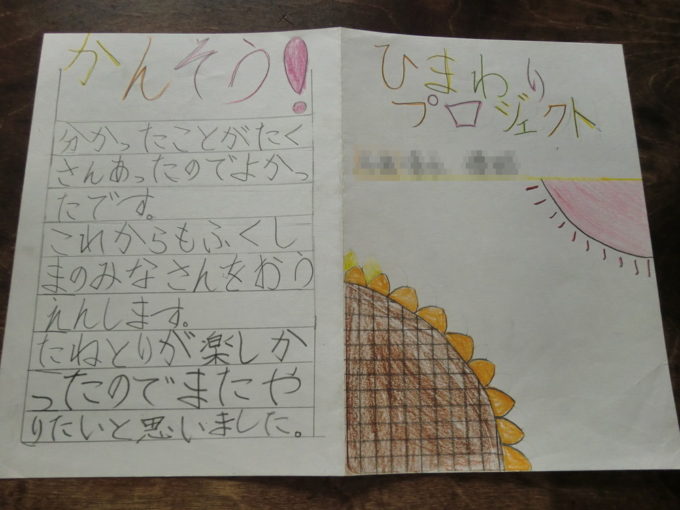 かんそう!
分かったことがたく
さんあったのでよかっ
たです。
これからもふくし
まのみなさんをおう
えんします。
たねとりが楽しか
ったのでまたや
りたいと思いました。
ひまわり
プロジェクト